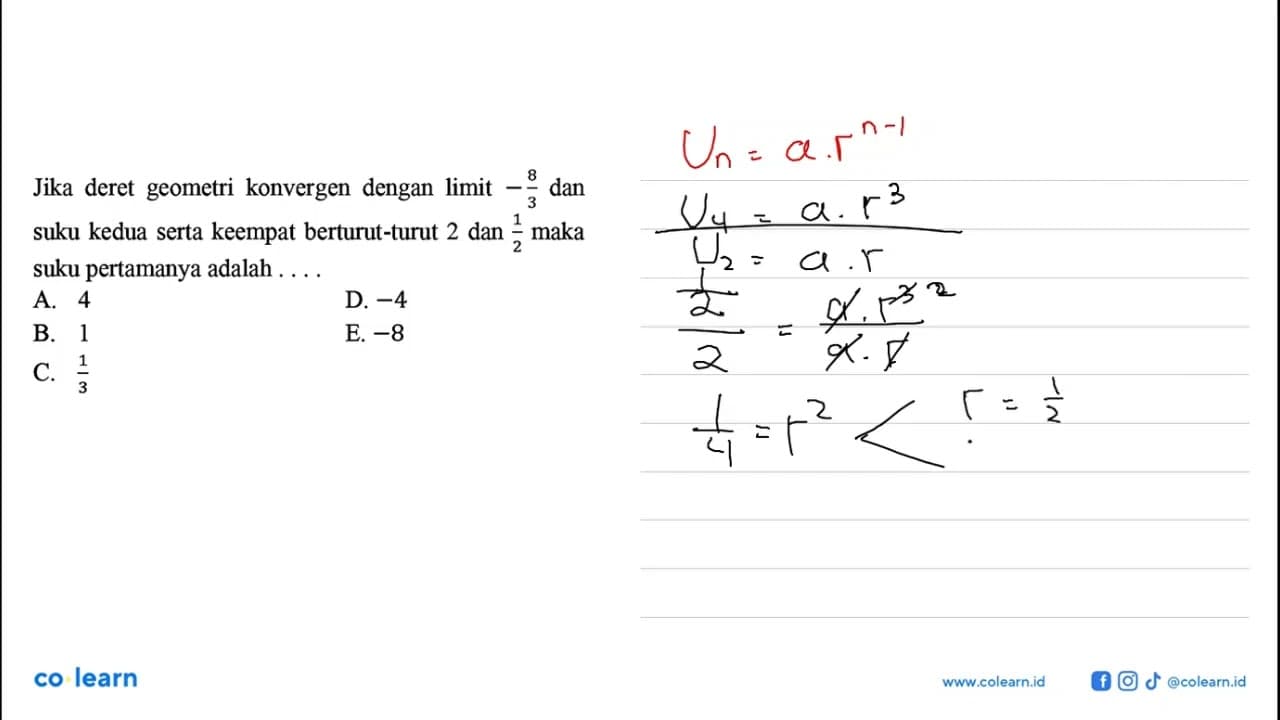 Jika deret geometri konvergen dengan limit −8/3 dan
suku kedua serta keempat berturut-turut 2 dan 1/2 maka
suku pertamanya adalah . . . .
A. 4
B. 1
C. 1/3
D. −4
E. −8
Un = a.r^n-1
U4 = a.r^3
U2 = a.r
1/2 / 2 = a.r^3 2 / a.r
1/4 = r^2 < r = 1/2
co learn
www.colearn.id
@colearn.id